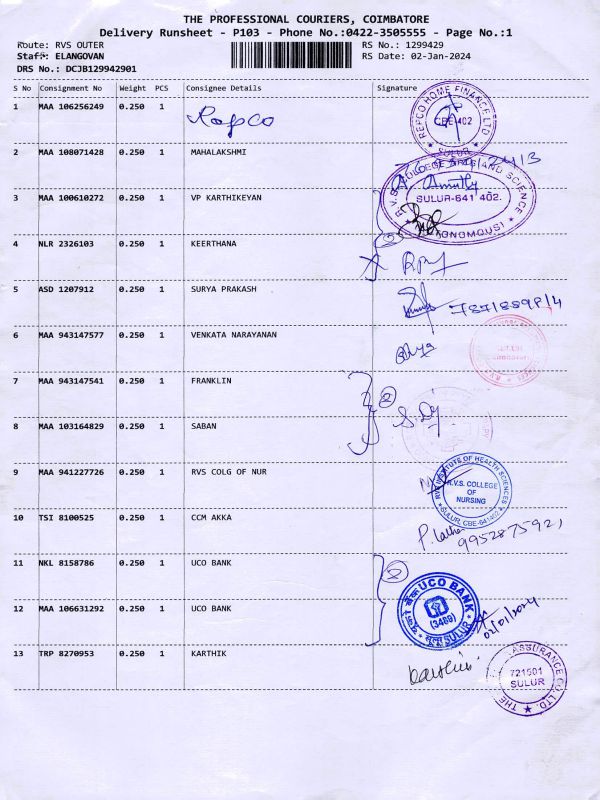 THE PROFESSIONAL COURIERS, COIMBATORE
Delivery Runsheet - P103 - Phone No.:0422-3505555 - Page No.:1
Route: RVS OUTER
RS No.: 1299429
Staff: ELANGOVAN
RS Date: 02-Jan-2024
DRS No.: DCJB129942901
S No Consignment No Weight PCS Consignee Details Signature
1 MAA 106256249 0.250 1 Repco
REPCO HOME FINANCE LTD
CBE 402
SULUR
2 MAA 108071428 0.250 1 MAHALAKSHMI
R.V.S. COLLEGE OF ARTS AND SCIENCE
SULUR-641 402.
3 MAA 100610272 0.250 1 VP KARTHIKEYAN
4 NLR 2326103 0.250 1 KEERTHANA
5 ASD 1207912 0.250 1 SURYA PRAKASH
6 MAA 943147577 0.250 1 VENKATA NARAYANAN
7 MAA 943147541 0.250 1 FRANKLIN
2
8 MAA 103164829 0.250 1 SABAN
9 MAA 941227726 0.250 1 RVS COLG OF NUR
RVS INSTITUTE OF HEALTH SCIENCES
R.V.S. COLLEGE
OF
NURSING
SULUR, CBE-641402
10 TSI 8100525 0.250 1 CCM AKKA
P. Latha
9952875921
11 NKL 8158786 0.250 1 UCO BANK
2
यूको बैंक UCO BANK
(3489)
सुलूर SULUR
12 MAA 106631292 0.250 1 UCO BANK
02/01/2024
13 TRP 8270953 0.250 1 KARTHIK
ASSURANCE CO. LTD.
721501
SULUR
THE